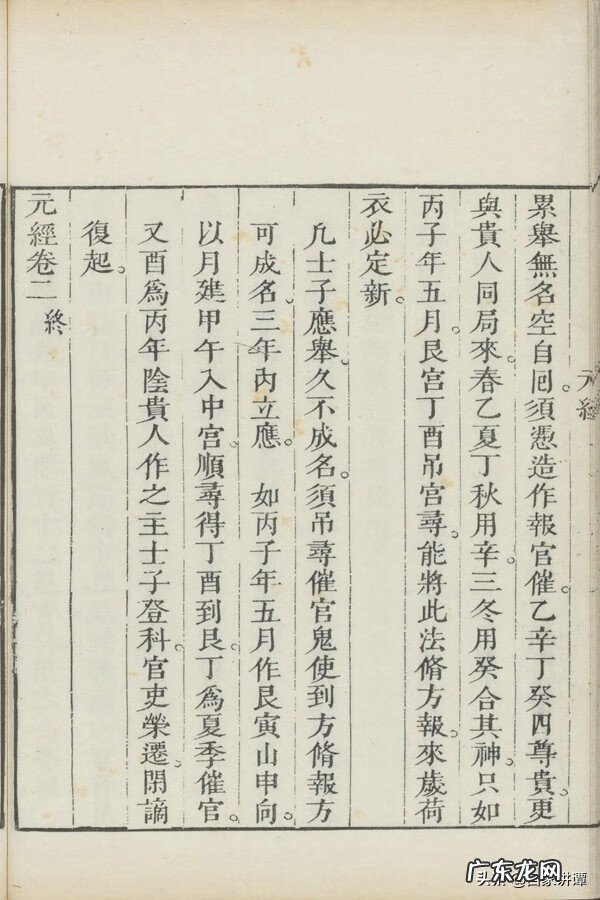 累舉無名空自回。須憑造作報官催。乙辛丁癸四尊貴。更
與貴人同局來。春乙夏丁秋用辛。三冬用癸合其神。只如
丙子年五月。艮宮丁酉吊宮尋。能將此法脩方報。來歲荷
衣必定新。
凡士子應舉。久不成名。須吊尋催官鬼使到方脩報方
可成名。三年內立應。如丙子年五月作艮寅山申向。
以月建甲午入中宮。順尋得丁酉到艮。丁為夏季催官。
又酉為丙年陰貴人作之主士子登科。官吏榮遷。閑謫
復起。
元經卷二 終
元經
广东龙网